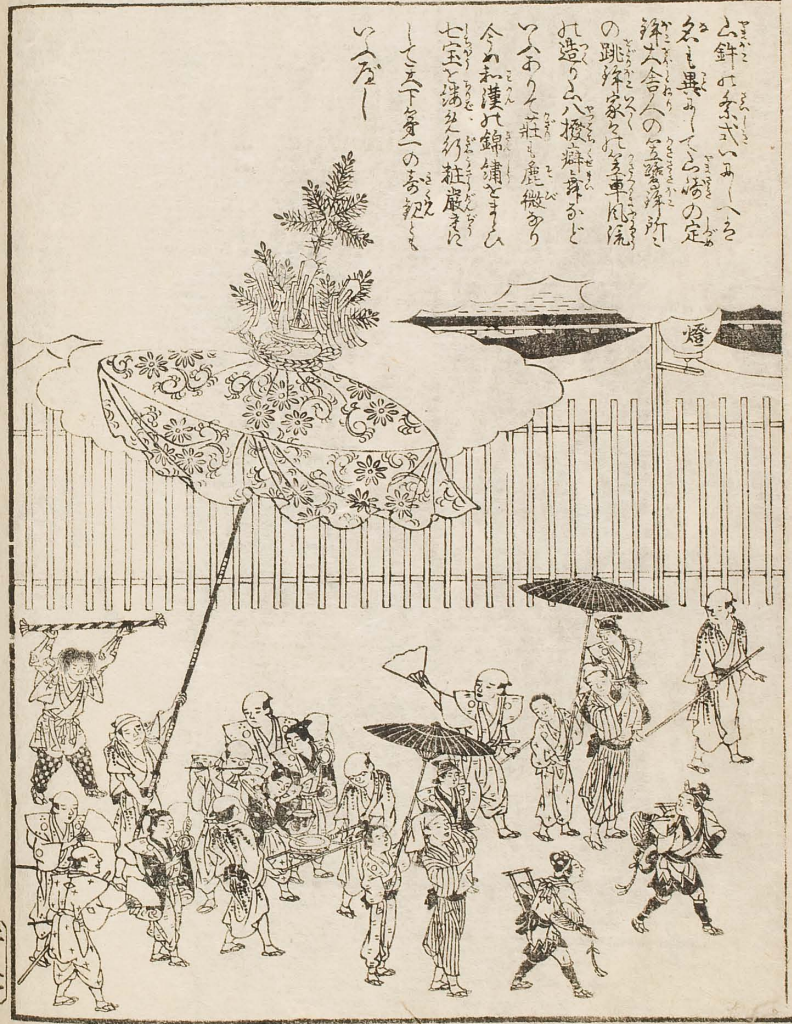 山鉾の系式いにしへは
名も異にして山崎の定
鉾大舎人の笠鷺鉾所〻
の跳鉾家〻の笠車風流
の造り山八撥癖舞など
いふありて荘も麁微なり
今や和漢の錦繍をまとひ
七宝を鏤め行粧厳重に
して天下第一の奇観とも
いふべし
燈